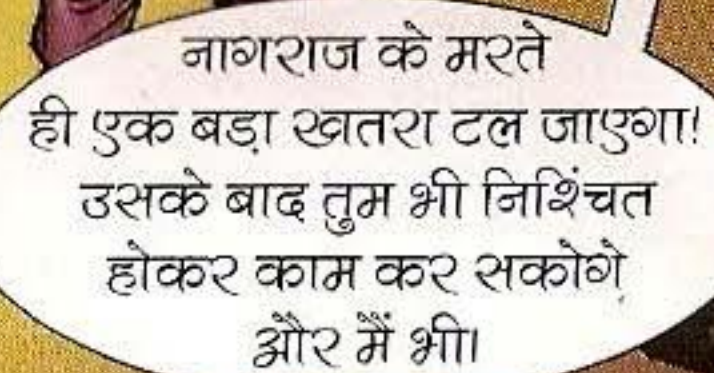 नागराज के मरते
ही एक बड़ा खतरा टल जाएगा!
उसके बाद तुम भी निश्चिंत
होकर काम कर सकोगे
और मैं भी।